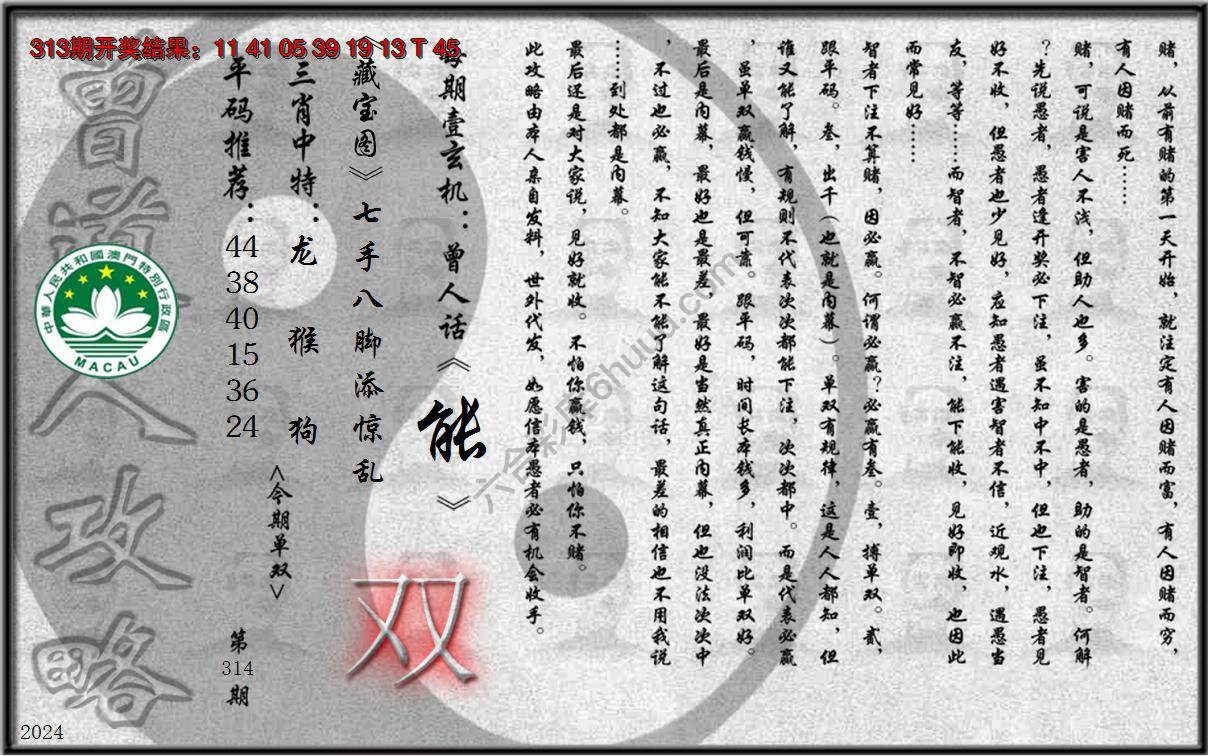 313期开奖结果：11 41 05 39 19 13 T 45
赌，从前有赌的第一天开始，就注定有人因赌而富，有人因赌而穷，
有人因赌而死……
赌，可说是害人不浅，但助人也多。害的是愚者，助的是智者。何解
？先说愚者，愚者逢开奖必下注，虽不知中不中，但也下注，愚者见
好不收，但愚者也少见好，应知愚者遇害智者不信，近观水，遇愚当
友，等等……而智者，不智必赢不注，能下能收，见好即收，也因此
而常见好……
智者下注不算赌，因必赢。何谓必赢？必赢有叁。壹，搏单双。贰，
跟平码。叁，出千（也就是内幕）。单双有规律，这是人人都知，但
谁又能了解，有规则不代表次次都能下注，次次都中。而是代表必赢
，虽单双赢钱慢，但可靠。跟平码，时间长本钱多，利润比单双好。
最后是内幕，最好也是最差，最好是当然真正内幕，但也没法次次中
，不过也必赢，不知大家能不能了解这句话，最差的相信也不用我说
……到处都是内幕。
最后还是对大家说，见好就收。不怕你赢钱，只怕你不赌。
此攻略由本人亲自发料，世外代发，如愿信本愚者必有机会收手。
每期壹玄机：曾人话《能》
《藏宝图》七手八脚添惊乱
双
三肖中特：龙 猴 狗
<今期单双>
平码推荐：44 38 40 15 36 24
第314期
曾道人攻略
中華人民共和國澳門特別行政區
MACAU
2024
六合彩库6huuu.com